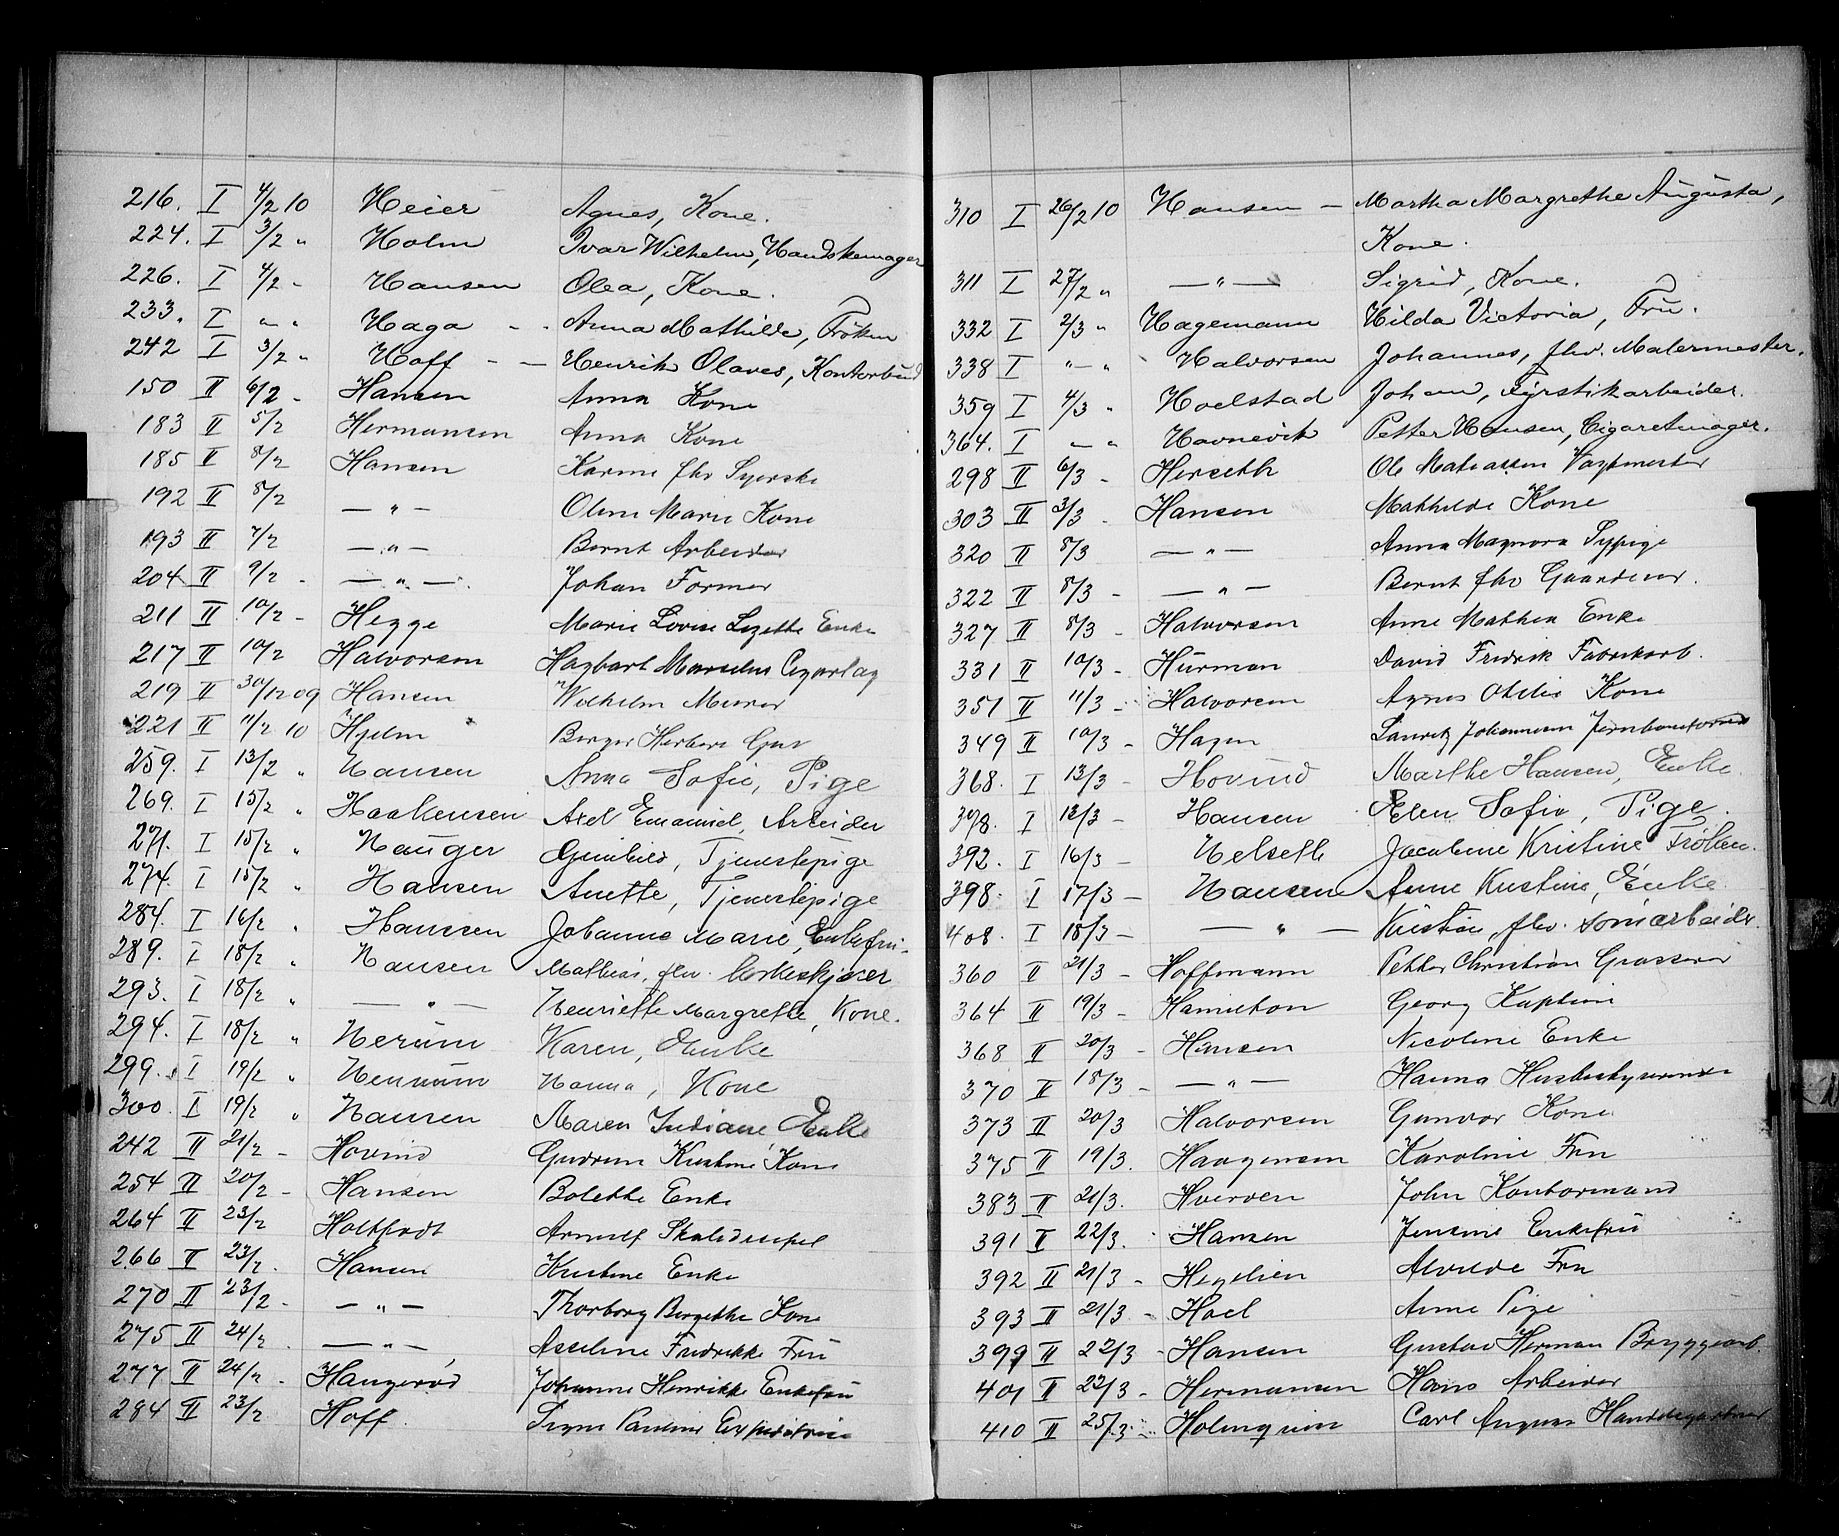 216. I 4/2 10 Heier Agnes, Kone.
224. I 3/2 " Holm Ivar Wilhelm, Handskemager
226. I 4/2 - Hansen Olea, Kone.
233. I " " Haga - - Anna Mathilde, Frøken
242 I 3/2 " Hoff - - Henrik Olaves, Kontorbud
150 II 6/2 - Hansen Anna Kone
183 II 5/2 Hermansen Anna Kone
185 II 8/2 Hansen Karine fhv Syerske
192 II 8/2 - " - Oline Marie Kone
193 II 7/2 - " - Bernt Arbeider
204 II 9/2 - - " - Johan Former
211 II 10/2 - Hegge Marie Lovise Lizette Enke
217 II 10/2 Halvorsen Hagbart Marselius
219 II 30/12 09 Hansen Wilhelm Murer
221 II 11/2 10 Hjelm Birger Herbert
259. I 13/2 " Hansen Anna Sofie, Pige
269. I 15/2 " Haakensen Axel Emanuel, Arbeider
271. I 15/2 " Hauger Gunhild, Tjenestepige
274. I 15/2 " Hansen Anette, Tjenestepige
284. I 16/2 " Hanssen Johanne Marie, Enkefru
289. I 18/2 " Hansen Mathias, fhv. Korkeskjærer
293. I 18/2 " - " - Henriette Margrethe, Kone.
294. I 18/2 " Herum Karen, Enke
299. I 19/2 " Hennum Hanna, Kone
300. I 19/2 " Hansen Maren Indiane Enke
242 II 21/2 - Hovind Gudrun Kristine Kone
254 II 20/2 - Hansen Bolette Enke
264 II 23/2 Holtstadt Arnulf Skoledisipel
266 II 23/2 . Hansen Kristine Enke
270 II 23/2 - - " - Thorborg Bergethe Kone
275 II 24/2 . - " - Asseline Fredrikke Fru
277 II 24/2 - Haugerød Johanne Henrikke Enkefru
284 II 23/2 Hoff. Signe Pauline Expeditrice
310 I 26/2 10 Hansen - Martha Margrethe Augusta,
Kone.
311 I 27/2 " - " - Sigrid, Kone.
332 I 2/3 " Hagemann Hilda Victoria, Fru.
338 I " - " Halvorsen Johannes, fhv. Malermester.
359 I 4/3 " Hoelstad Johan, Fyrstikarbeider.
364. I - " Havnevik Petter Hansen, Cigaretmager.
298 II 6/3 - Herseth Ole Matiassen Vagtmester
303 II 3/3 - Hansen Mathilde Kone
320 II 8/3 - " - Anna Magnora Sypige
322 II 8/3 - - " - Bernt fhv Gaardener.
327 II 8/3 - Halvorsen Anne Mathea Enke
331 II 10/3 - Hurman David Fredrik Fabrikarb.
351 II 11/3 - Halvorsen Agnes Otilie Kone
349 II 10/3 - Hagen Lauritz Johannesen
368. I 13/3 - Hovind Marthe Hansen, Enke.
378. I 12/3 - Hansen Elen Sofie, Pige.
392. I 16/3 - Helseth Jacobine Kristine Frøken.
398. I 17/3 - Hansen Anne Kristine, Enke.
408. I 18/3 - - " - Kristian, fhv. Tomtearbeider.
360 II 21/3 - Hoffmann Petter Christian Grosserer
364 II 19/3 - Hamilton Georg Kaptein
368 II 20/3 - Hansen Nicoline Enke
370 II 18/3 - - " - Hanna Husbestyrerinde
373 II 20/3 Halvorsen Gunvor Kone
375 II 19/3. Haagensen Karoline Fru
383 II 21/3. Hverven John Kontormand
391 II 22/3. Hansen Jensine Enkefru
392 II 21/3 - Hegelien Alvilde Fru
393 II 21/3 - Hoel Anne Pige
399 II 22/3 - Hansen Gustav Herman Bryggearb.
401 II 22/3 - Hermansen Hans Arbeider
410 II 25/3 Holmquist Carl August Handelsgartner